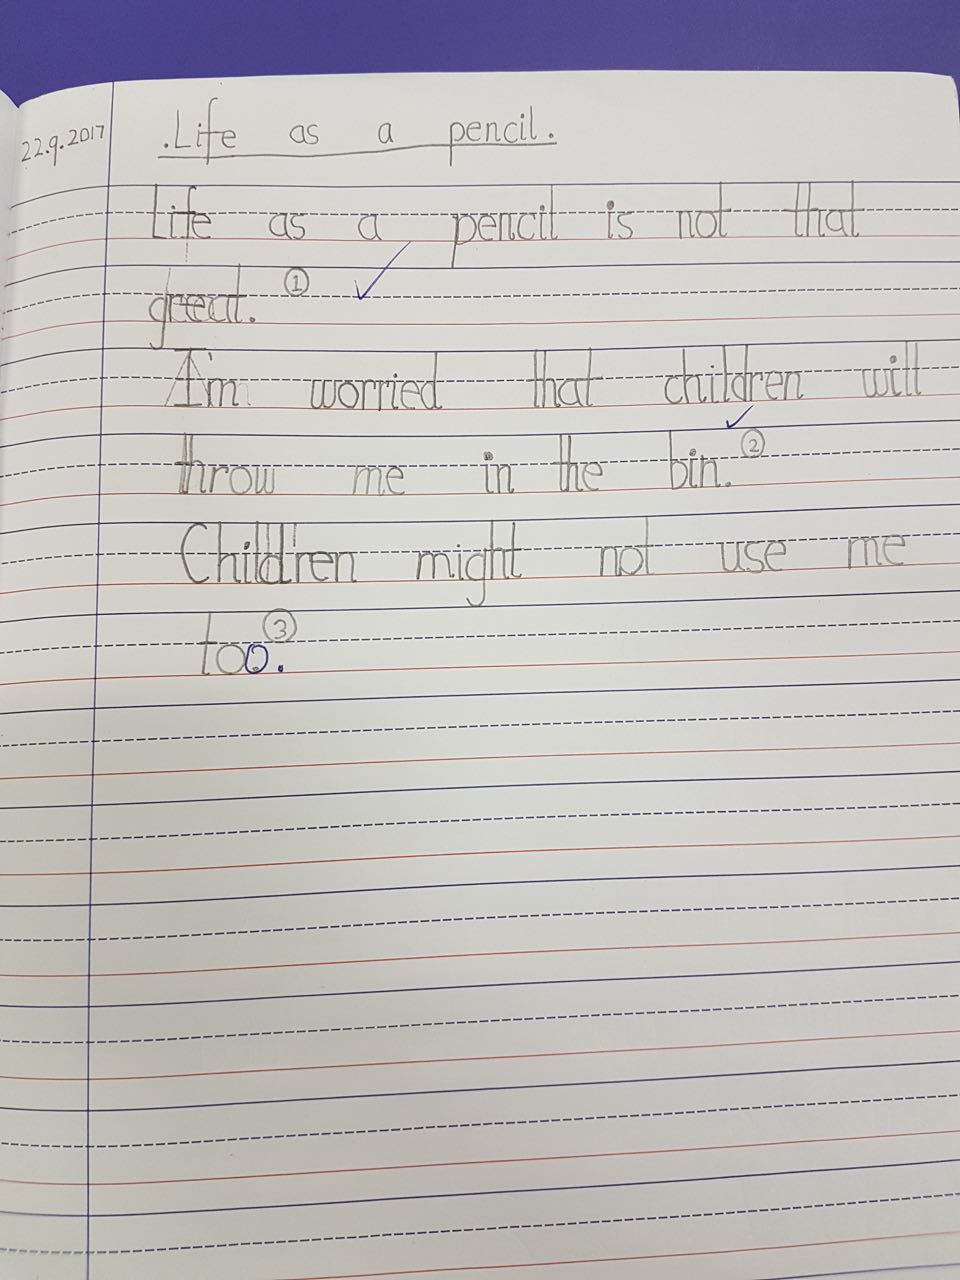 22.9.2017
.Life as a pencil.
Life as a pencil is not that
great. ①
I'm worried that children will
throw me in the bin. ②
Children might not use me
too. ③